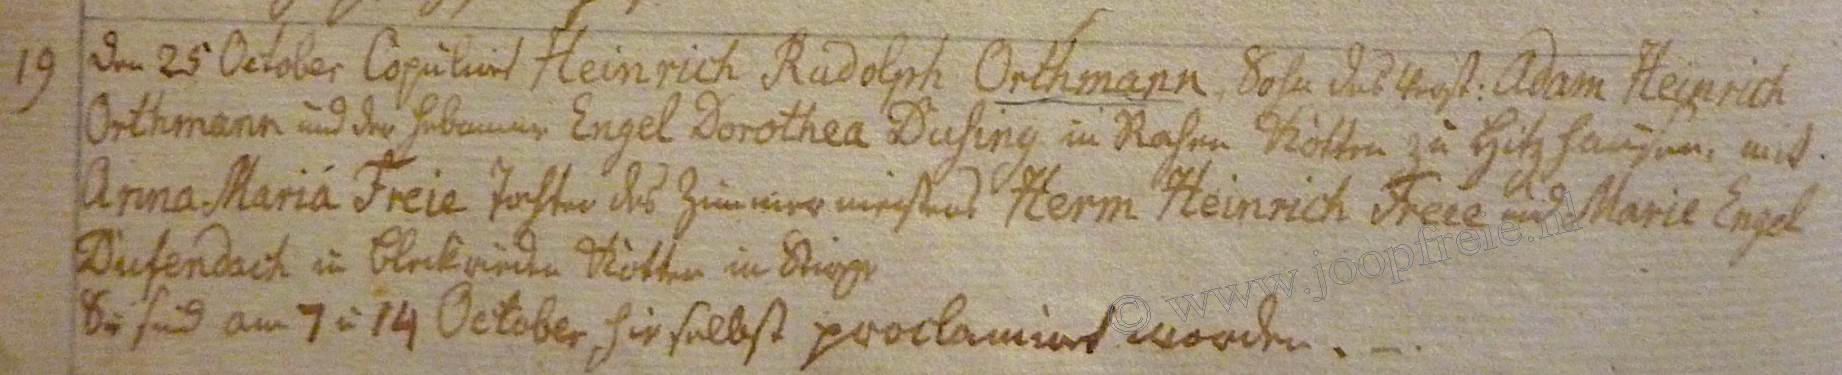 19 den 25 October Copulirt Heinrich Rudolph Orthmann, Sohn des verst: Adam Heinrich
Orthmann und der Hebamme Engel Dorothea Düsing in Kotten zu Hitzhausen, mit
Anna Maria Freie Tochter des Zimmermeisters Herm Heinrich Freie und Marie Engel
Düfendach in Kotten in
Sie sind am 7 u 14 October hieselbst proclamirt worden. —.
© www.joopfreie.nl